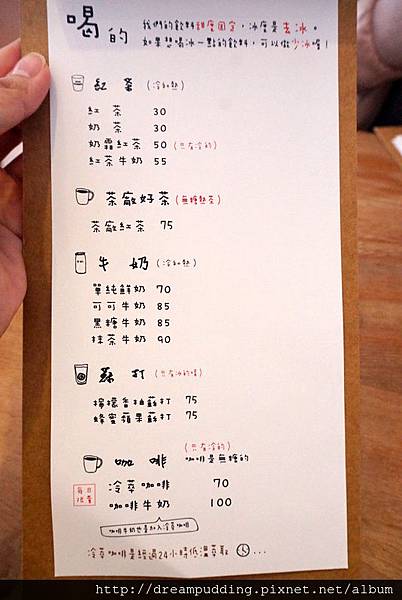 喝的
我們的飲料甜度固定，冰度是去冰。
如果想喝冰一點的飲料，可以做少冰喔！
紅茶（冷和熱）
紅茶 30
奶茶 30
奶霜紅茶 50（只有冷的）
紅茶牛奶 55
茶廠好茶（無糖熱茶）
茶廠紅茶 75
牛奶（冷和熱）
單純鮮奶 70
可可牛奶 85
黑糖牛奶 85
抹茶牛奶 90
蘇打（只有冰的唷）
檸檬香柚蘇打 75
蜂蜜蘋果蘇打 75
（只有冷的）
咖啡 咖啡是無糖的
每日限量
冷萃咖啡 70
咖啡牛奶 100
咖啡牛奶也是加入冷萃咖啡
冷萃咖啡是經過24小時低溫萃取...
http://dreampudding.pixnet.net/album